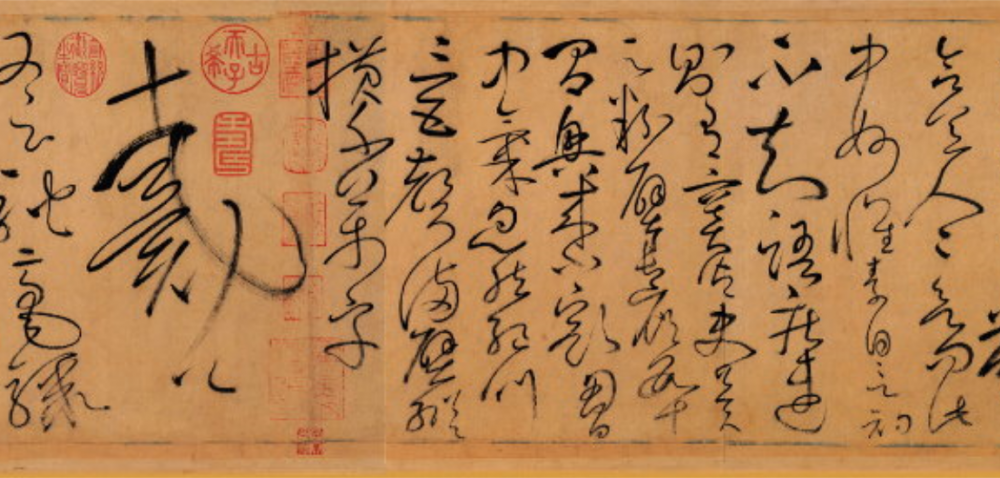 合宜人人欲問此
中妙懷素自言初
不知語疾迅
則有竇御史冀
云粉壁長廊數十
間興來小豁胸
中氣忽然絕叫
三五聲滿壁縱
橫千萬字
戴公
又云馳毫驟
古希天子